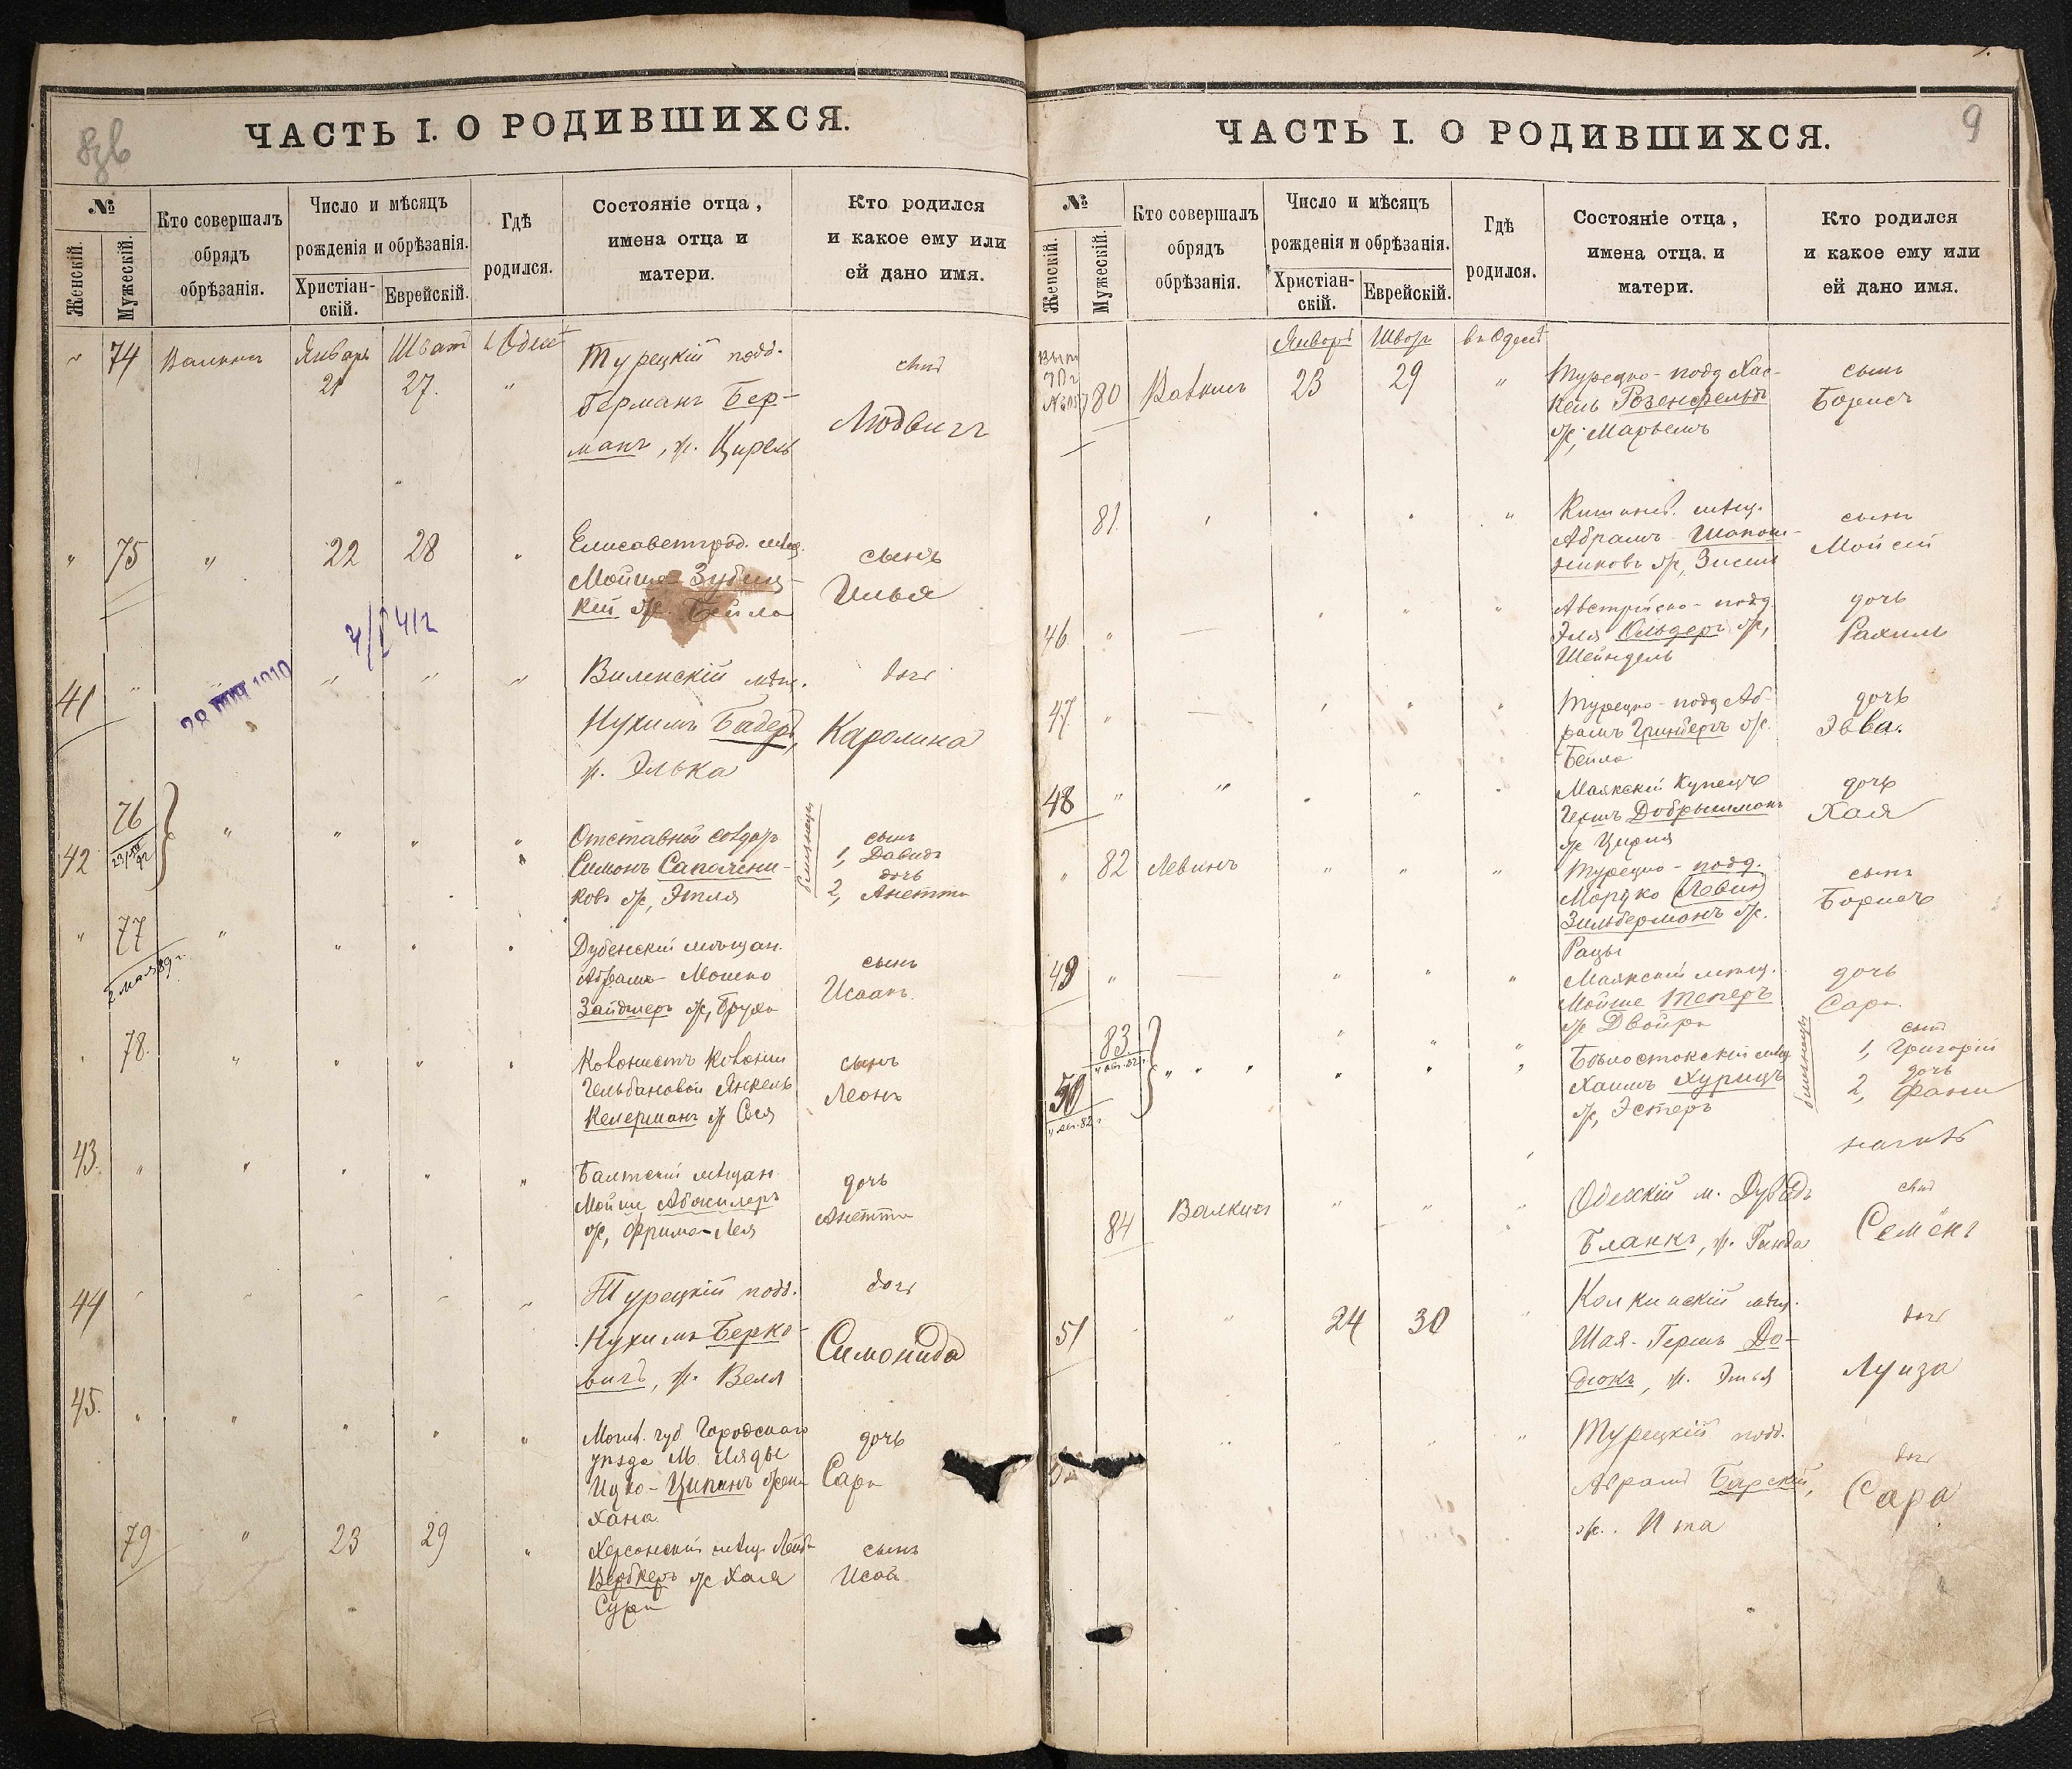 8зв
ЧАСТЬ I. О РОДИВШИХСЯ.
№
Женскій.
Мужескій.
Кто совершалъ
обрядъ
обрѣзанія.
Число и мѣсяцъ
рожденія и обрѣзанія.
Христіан-
скій.
Еврейскій.
Гдѣ
родился.
Состояніе отца,
имена отца и
матери.
Кто родился
и какое ему или
ей дано имя.
" 74 Валкинъ Январь 21 Шват 27. "
Турецкій подд.
Германъ Бер-
манъ, ж. Цирель
сынъ
Людвигъ
" 75 " 22 28 "
Елисаветград. мѣщ.
Мойше Зубиц-
кій ж. Бейла
сынъ
Илья
41 " " " " "
Виленскій мѣщ.
Нухимъ Бадеръ,
ж. Элька
дочь
Каролина
42 76 " " " "
Отставной солдатъ
Симонъ Сапожни-
ковъ ж, Этля
близнецы
сынъ
1, Давидъ
дочь
2, Анетта
" 77 " " " "
Дубенскій мѣщан.
Абрамъ-Мошко
Зайдлеръ ж, Бруха
сынъ
Исаакъ.
78. " " " "
Колонистъ колоніи
Янкель
Келерманъ ж Сося
сынъ
Леонъ
43. " " " " "
Балтскій мѣщан
Мойше
ж, Фрима-Лея
дочь
Анетта
44 " " " " "
Турецкій подд.
Нухимъ Берко-
вичъ, ж. Веля
дочь
Симонида
45. " " " " "
Могил. губ Городскаго
уѣзда М. Ляды
Ицко-Ципинъ жена
Хана
дочь
Сара
79 " 23 29 "
Херсонскій мѣщ. Лейба
Верблеръ ж Хая
Сура
сынъ
Исай
9
ЧАСТЬ I. О РОДИВШИХСЯ.
№
Женскій.
Мужескій.
Кто совершалъ
обрядъ
обрѣзанія.
Число и мѣсяцъ
рожденія и обрѣзанія.
Христіан-
скій.
Еврейскій.
Гдѣ
родился.
Состояніе отца,
имена отца и
матери.
Кто родился
и какое ему или
ей дано имя.
80 Валкинъ 23 29 "
Турецко-подд Хас-
кель Розенфельдъ
ж, Марьемъ
сынъ
Борисъ
81. " " " "
Кишинев. мѣщ.
Абрамъ Шапош-
никовъ ж, Зисля
сынъ
Мойсей
46 " — " " "
Австрійско-подд
Эля ж,
Шейндель
дочь
Рахиль
47 " — " " "
Турецко-подд Аб-
рамъ Гринбергъ ж.
Бейла
дочь
Эвва.
48 " " " " "
Маякскій Купецъ
Герш Добрышманъ
ж Цирля
дочь
Хая
" 82 Левинъ " " "
Турецко-подд.
Мордко (Левин)
Зильберманъ ж.
Рацы
сынъ
Борисъ
49 " — " " "
Маякскій мѣщ.
Мойше Теперъ
ж Двойра
дочь
Сара.
50 83 " " " "
Бѣлостокскій мѣщ
Хаимъ Хурицъ
ж, Эстеръ
близнецы
сынъ
1, Григорій
дочь
2, Фани
84 Валкинъ " " "
Одесскій м. Дувидъ
Бланкъ, ж. Гинда
сынъ
Семёнъ
51 " " 24 30 "
Колкинскій мѣщ.
Шая-Гершъ До-
дюкъ, ж. Этля
дочь
Луиза
Турецкій подд.
Абрамъ Барскій,
ж. Ита
дочь
Сара